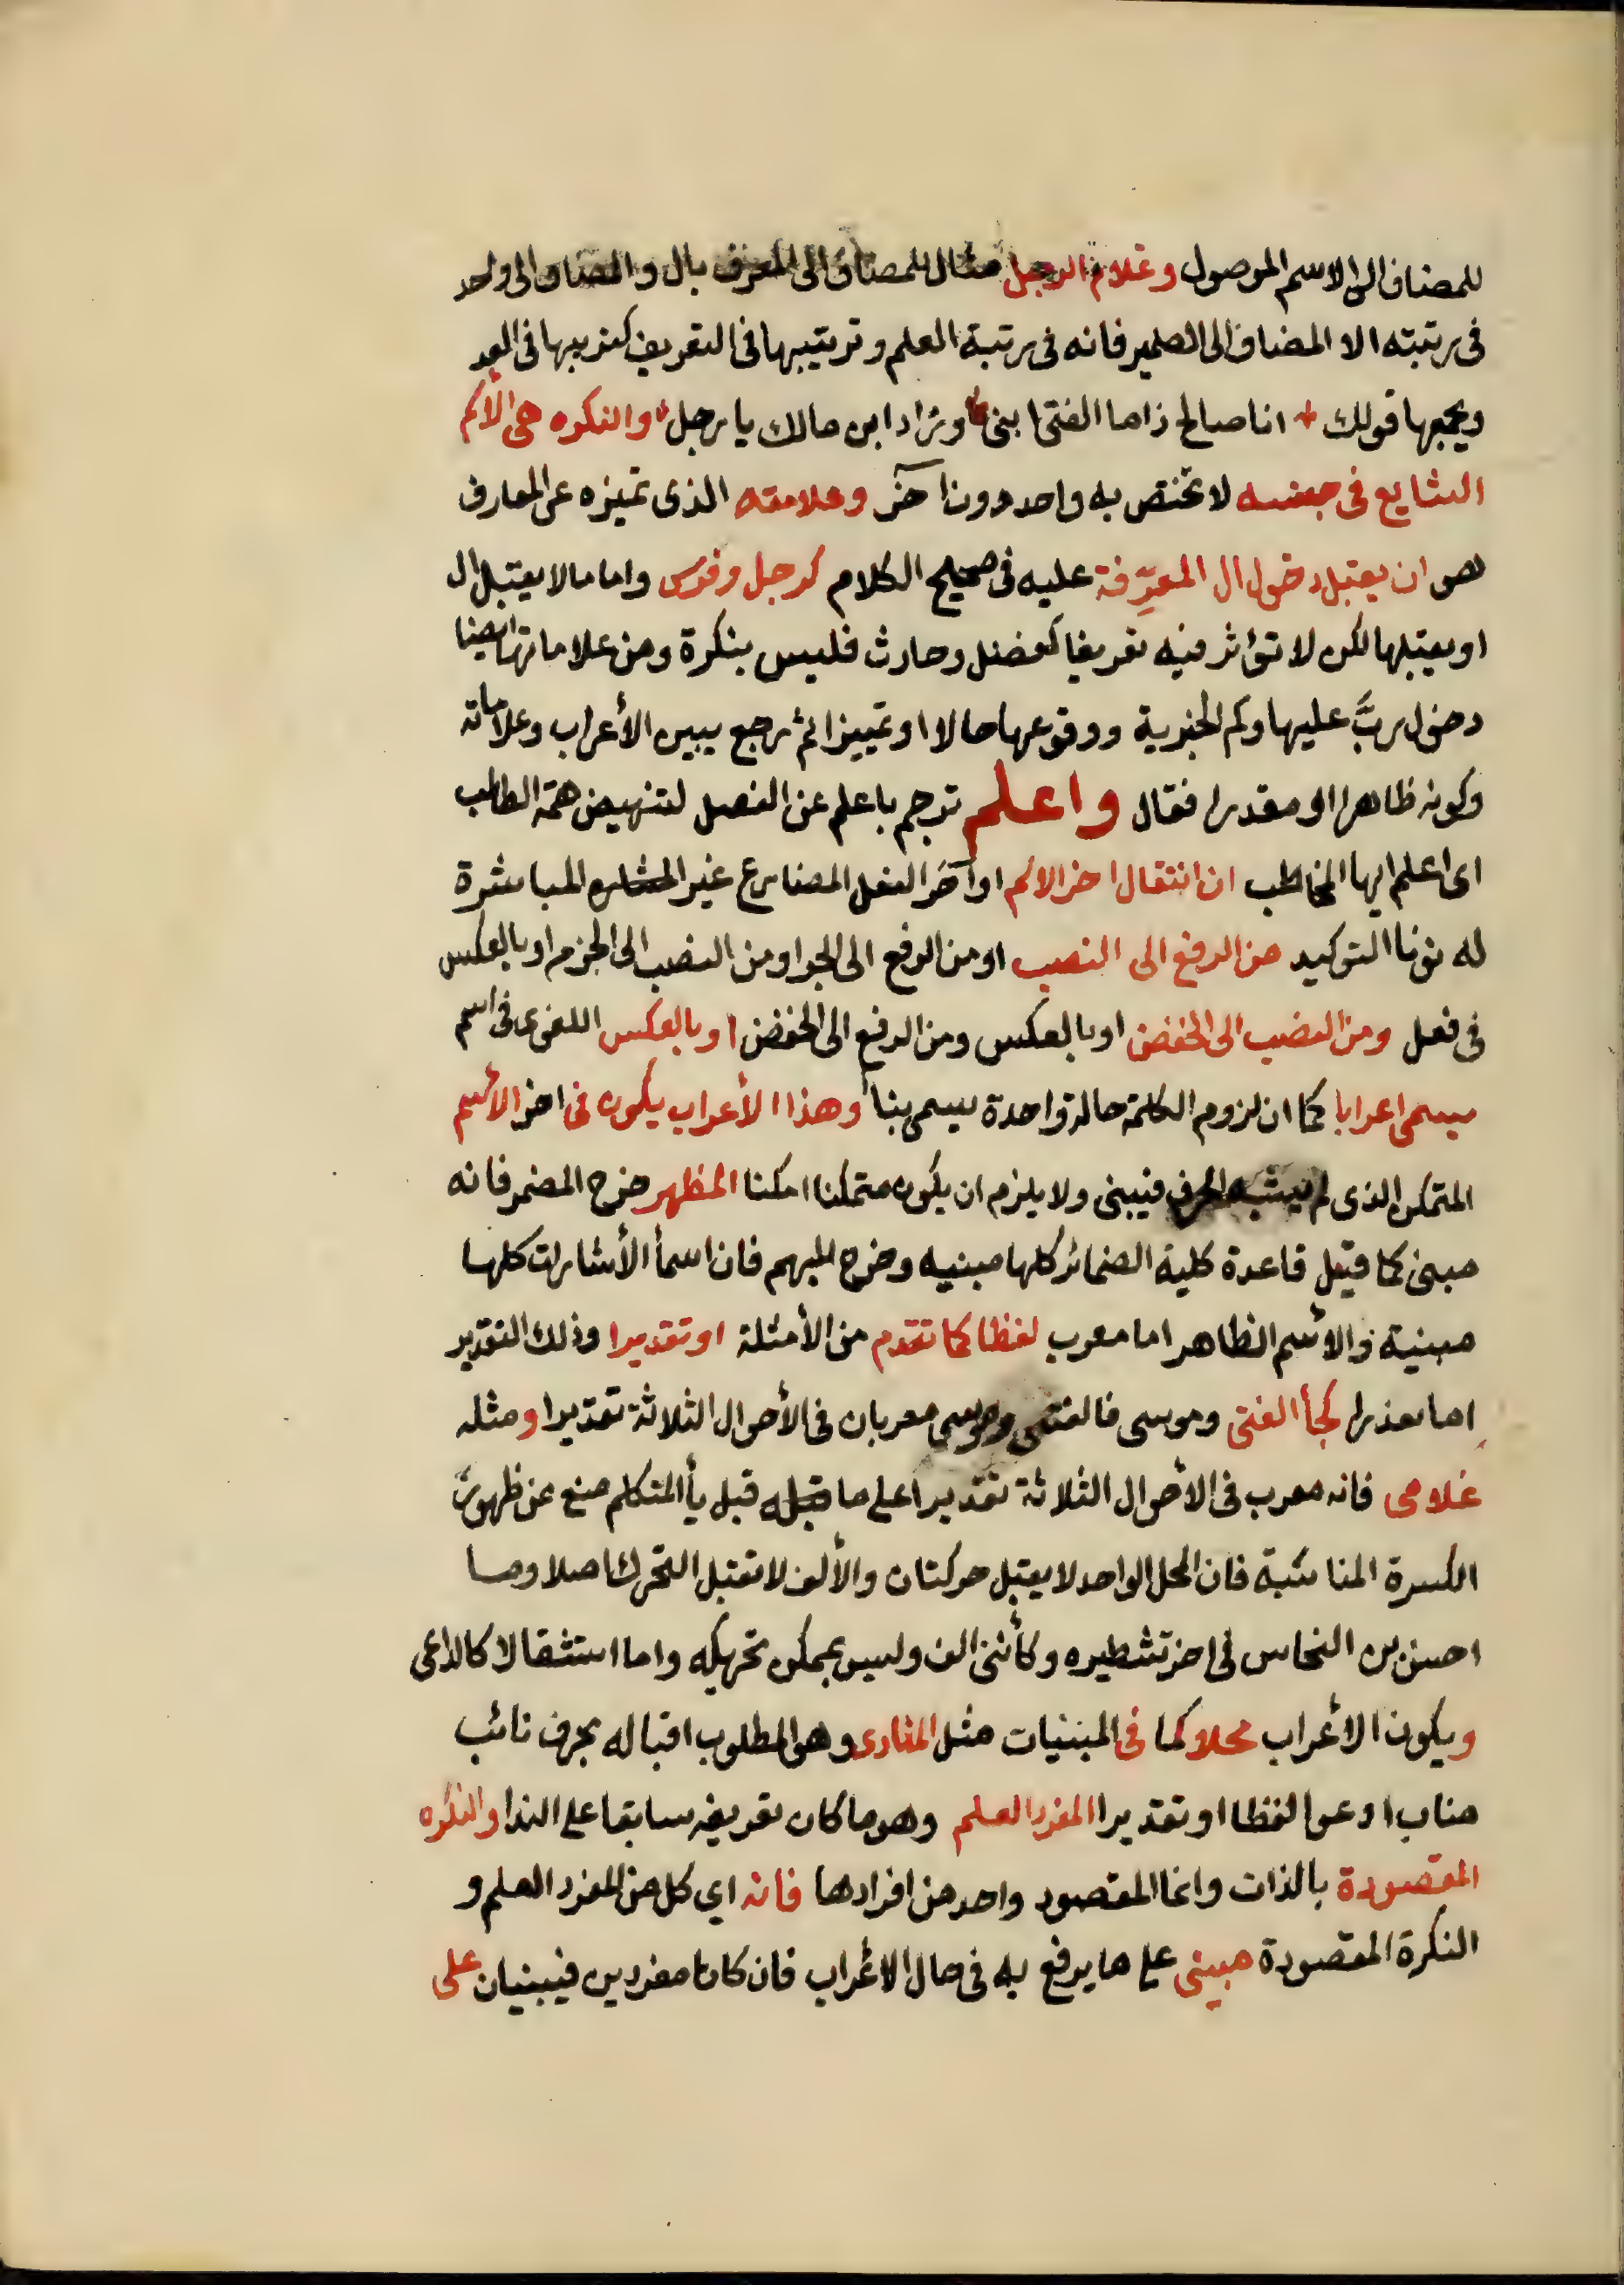 للمضاف الى الاسم الموصول وغلام الرجل مثال للمضاف الى المعرف بال والمضاف الى واحد
فى رتبته الا المضاف الى الضمير فانه فى رتبة العلم وترتيبها فى التعريف كترتيبها فى العد
ويجمعها قولك انا صالح ذا ما الفتى ابنى وزاد ابن مالك يا رجل والنكره هى الأسم
الشايع فى جنسه لا تختص به واحد دون آخر وعلامته الذى تميزه عن المعارف
هو ان يقبل دخول ال المعرِّفة عليه فى صحيح الكلام كرجل وفرس واما ما لا يقبل ال
او يقبلها لكن لا تؤثر فيه تعريفا كفضل وحارث فليس بنكرة ومن علاماتها ايضا
دخول ربَّ عليها وكم الخبرية ووقوعها حالا او تمييزا ثم رجع يبين الأعراب وعلاماته
وكونه ظاهرا او مقدرا فقال واعلم ترجم باعلم عن الفصل لتنهيض همة الطالب
اى اعلم ايها المخاطب ان انتقال اخر الاسم او آخر الفعل المضارع غير المباشرة
له نونا التوكيد من الرفع الى النصب او من الرفع الى الجر او من النصب الى الجزم او بالعكس
فى فعل ومن النصب الى الخفض او بالعكس ومن الرفع الى الخفض او بالعكس اللغوى فى اسم
يسمى اعرابا كما ان لزوم الكلمة حالة واحدة يسمى بنا وهذا الأعراب يكون فى اخر الأسم
المتمكن الذى لم يشبه الحرف فيبنى ولا يلزم ان يكون متمكنا امكنا المظهر خرج المضمر فانه
مبنى كما قيل قاعدة كلية الضمائر كلها مبنيه وخرج المبهم فان اسما الأشارات كلها
مبنية والأسم الظاهر اما معرب لفظا كما تقدم من الأمثلة او تقديرا وذلك التقدير
اما تعذرا كجأ الفتى وموسى فالفتى وموسى معربان فى الأحوال الثلاثة تقديرا ومثله
غلامى فانه معرب فى الأحوال الثلاثة تقديرا على ما قبل يأ المتكلم منع من ظهوره
الكسرة المناسبة فان المحل الواحد لا يقبل حركتان والألف لا تقبل التحرك اصلا وما
احسن بن النحاس فى اخر تشطيره وكأننى الف وليس بممكن تحريكه واما استثقالا كالداعى
ويكون الأعراب محلا كما فى المبنيات مثل المنادى وهو المطلوب اقباله بحرف نائب
مناب ادعو لفظا او تقديرا المفرد العلم وهو ما كان تعريفه سابقا على الندا والنكره
المقصودة بالذات وانما المقصود واحد من افرادها فانه اي كل من المفرد العلم و
النكرة المقصودة مبنى على ما يرفع به فى حال الأعراب فان كانا مفردين فيبنيان على